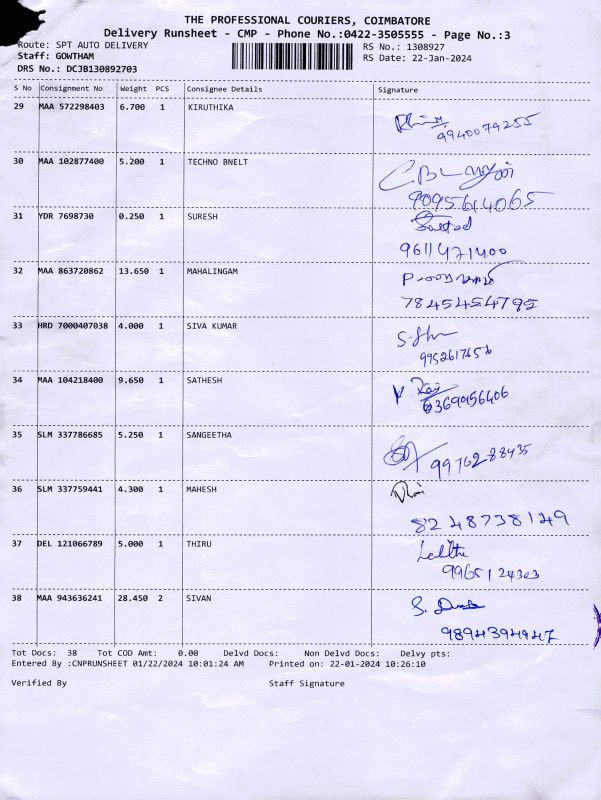 THE PROFESSIONAL COURIERS, COIMBATORE
Delivery Runsheet - CMP - Phone No.:0422-3505555 - Page No.:3
Route: SPT AUTO DELIVERY
RS No.: 1308927
Staff: GOWTHAM
RS Date: 22-Jan-2024
DRS No.: DCJB130892703
S No Consignment No Weight PCS Consignee Details Signature
29 MAA 572298403 6.700 1 KIRUTHIKA
9940079255
30 MAA 102877400 5.200 1 TECHNO BNELT
9095614065
31 YDR 7698730 0.250 1 SURESH
9611471400
32 MAA 863720862 13.650 1 MAHALINGAM
7845454795
33 HRD 7000407038 4.000 1 SIVA KUMAR
9952617656
34 MAA 104218400 9.650 1 SATHESH
6369956406
35 SLM 337786685 5.250 1 SANGEETHA
9976288435
36 SLM 337759441 4.300 1 MAHESH
8248738149
37 DEL 121066789 5.000 1 THIRU
Lalitha
9965124303
38 MAA 943636241 28.450 2 SIVAN
9894394947
Tot Docs: 38 Tot COD Amt: 0.00 Delvd Docs: Non Delvd Docs: Delvy pts:
Entered By :CNPRUNSHEET 01/22/2024 10:01:24 AM Printed on: 22-01-2024 10:26:10
Verified By Staff Signature